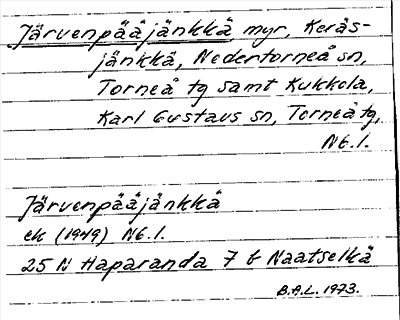 Järvenpääjänkkä myr, Keräs-
jänkkä, Nedertorneå sn,
Torneå tg samt Kukkola,
Karl Gustavs sn, Torneå tg,
Nb.l.
Järvenpääjänkkä
ek (1949) Nb.l.
25 N Haparanda 7 b Naatselkä
B.A.L. 1973.